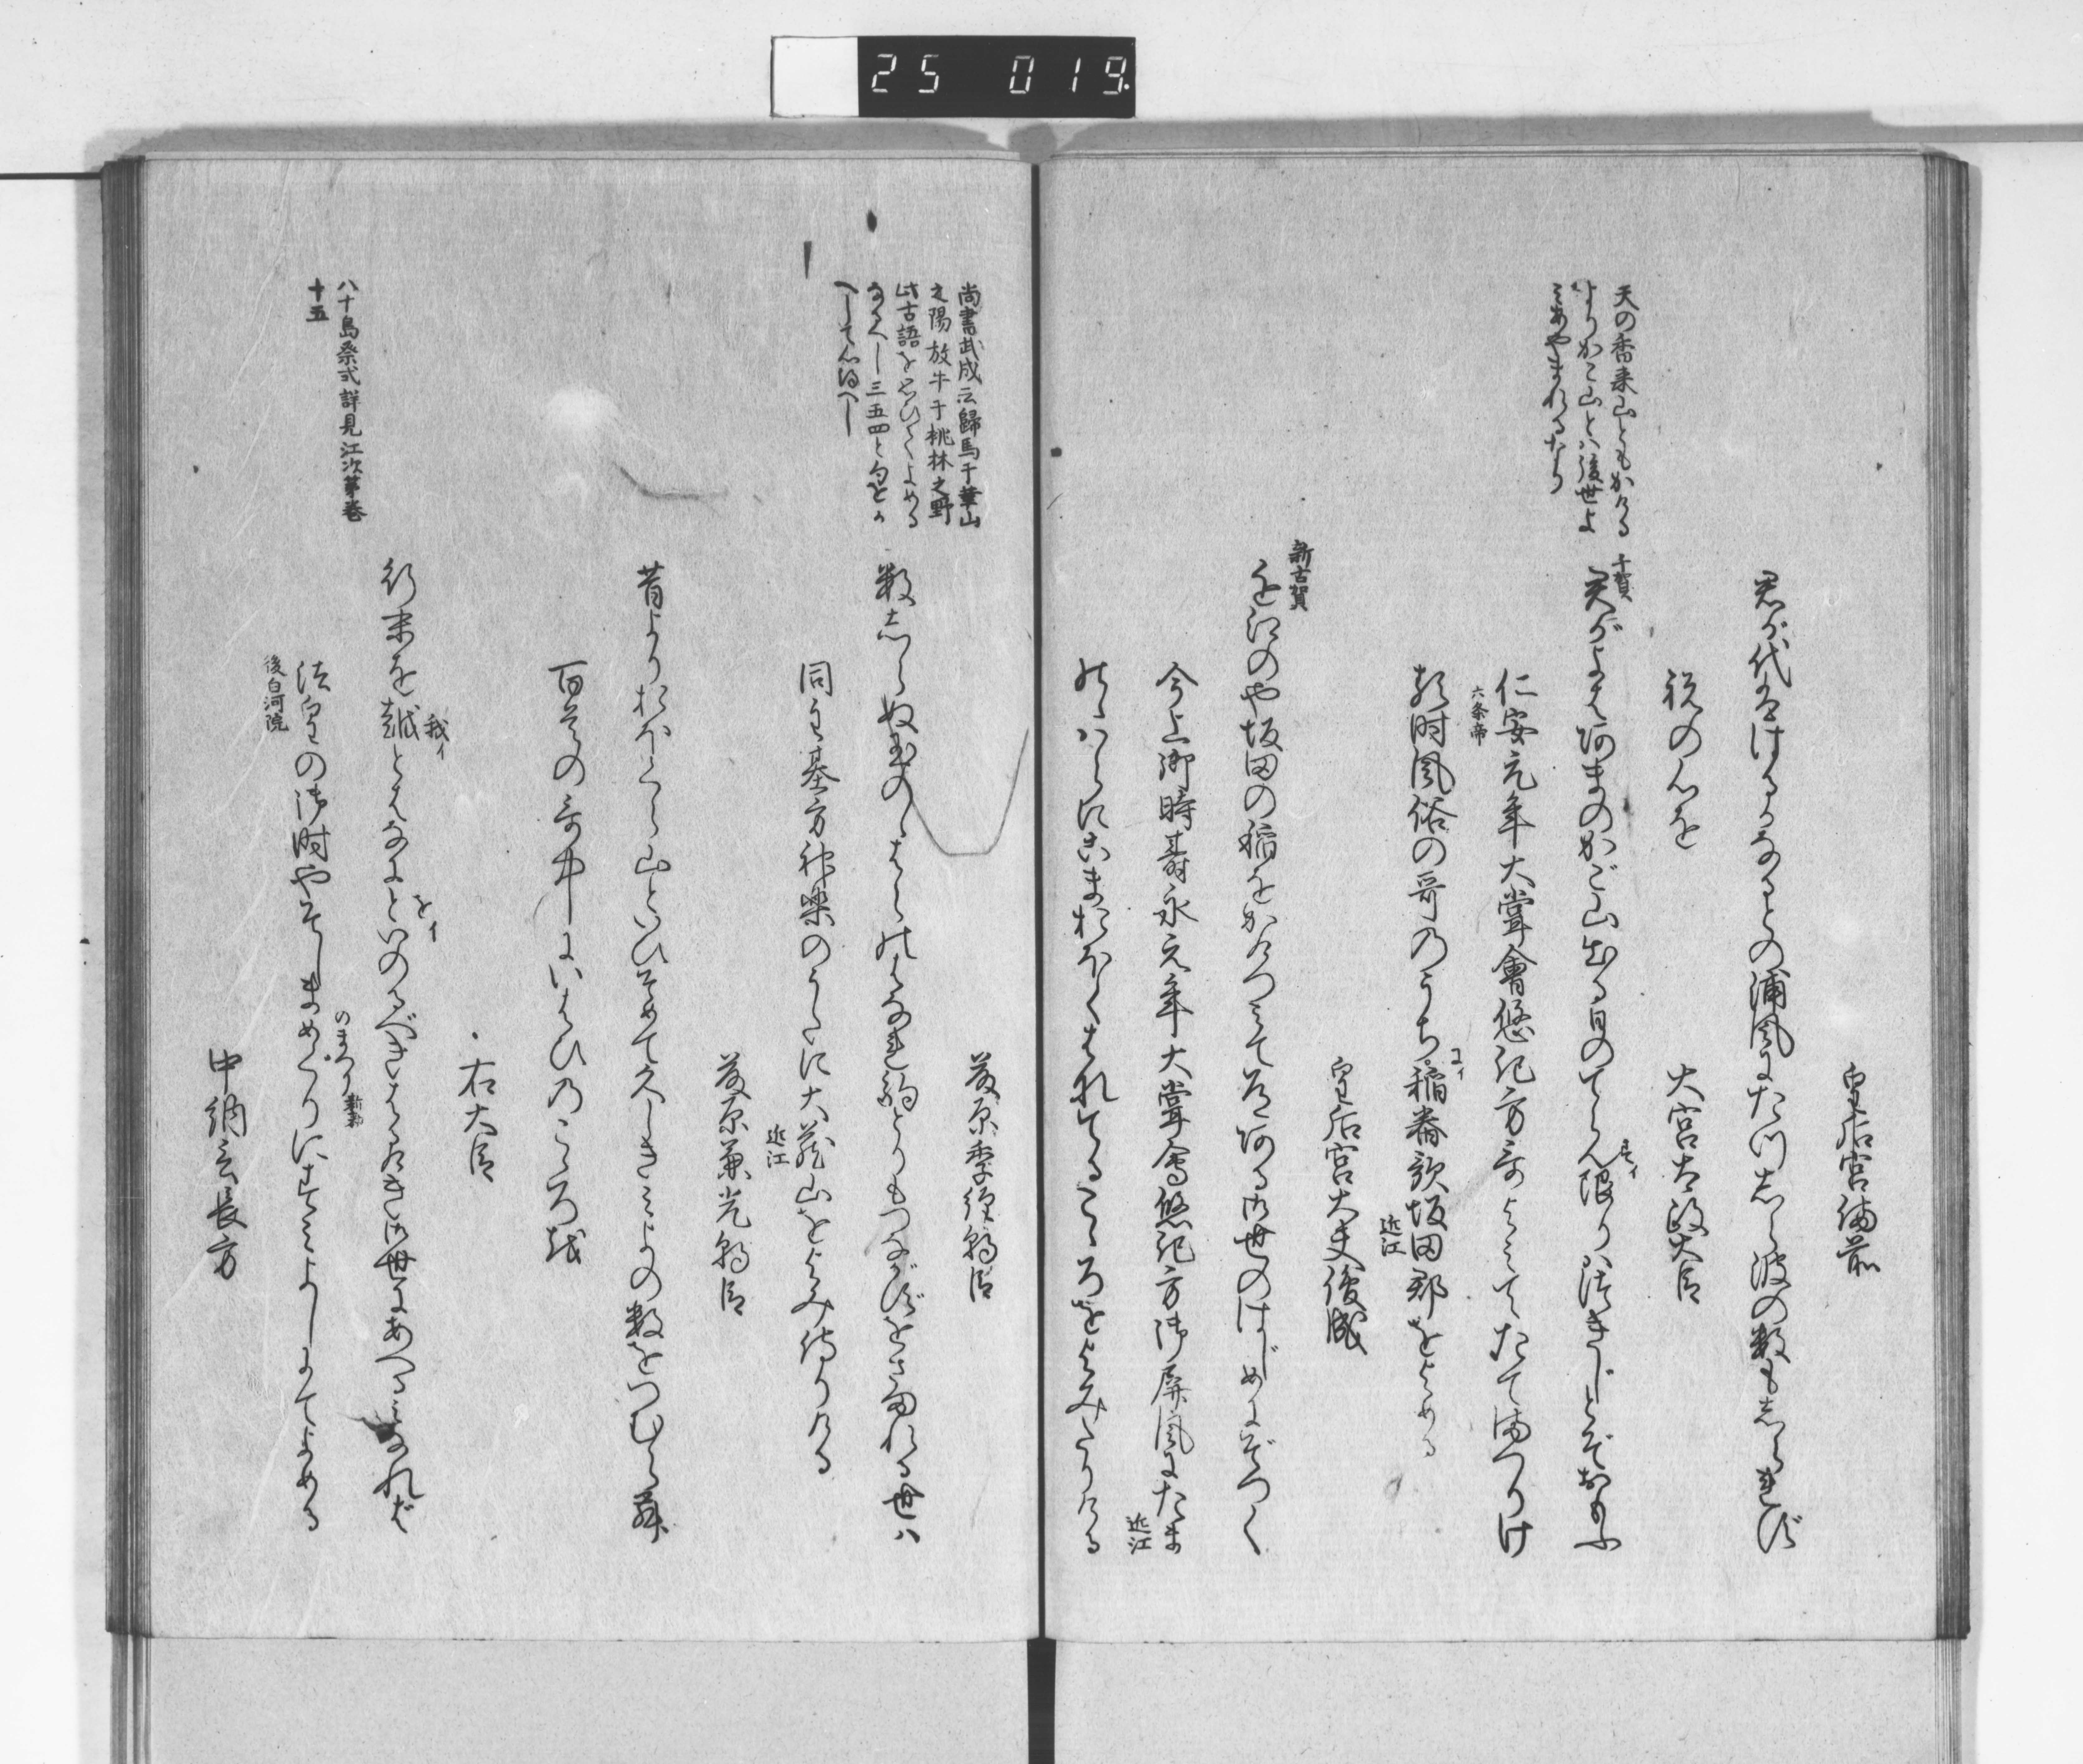 25 019.
皇后宮備前
君が代ははるかなるとの浦風にたつしら波の数もしられず
祝の心を
大宮太政大臣
天の香来山ともかける
よりかこ山とは後世よ
みあやまれるなり
千賀
君がよはあまのかご山出る日のてらん限りはつきじとぞおもふ
仁安元年大嘗會悠紀方哥よみてたてまつりけ
六条帝
る時風俗の哥のうち稲舂歌坂田郡をよめる
近江
皇后宮大夫俊成
新古賀
近江のや坂田の稲をかけつみて道ある御世のはじめにぞつく
今上御時寿永元年大嘗會悠紀方御屏風にたま
近江
のはらにこまおほくはなれたるところをよみたりける
藤原季経朝臣
尚書武成云歸馬于華山
之陽放牛于桃林之野
此古語を思ひてよめる
なるへし三五四と句をか
へして心得へし
数しらぬ玉のはらのはなれ駒とりもつながずをさまれる世は
同主基方神樂のうたに大蔵山をよみ侍りける
近江
藤原兼光朝臣
昔よりおほくら山といひそめて久しきみよの数をつむらん
百首の哥中にいはひのこころを
右大臣
行末を越とはなにといのるべきはるけき御世にあへるみなれば
我イ
をイ
八十島祭式詳見江次第巻
十五
法皇の御時やそしまめぐりにすみよしにてよめる
後白河院
のまつり新勅
中納言長方